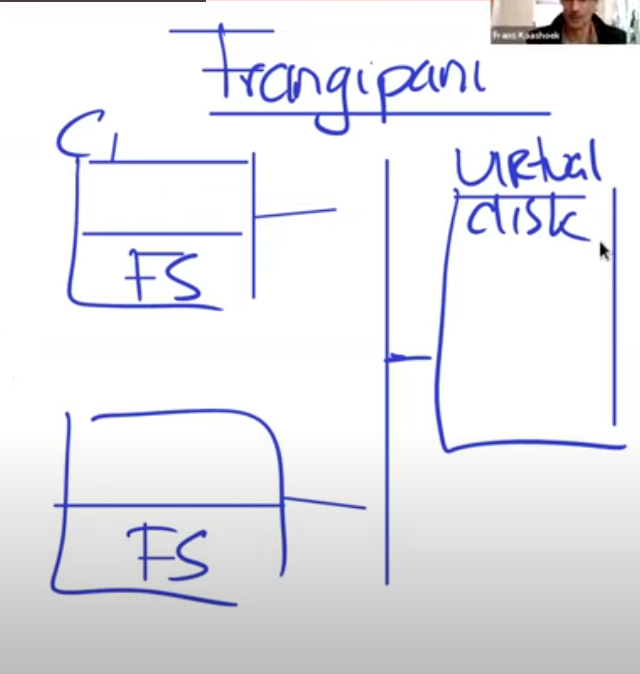 Frans Kaashoek
Frangipani
C1
Virtual
disk
FS
FS